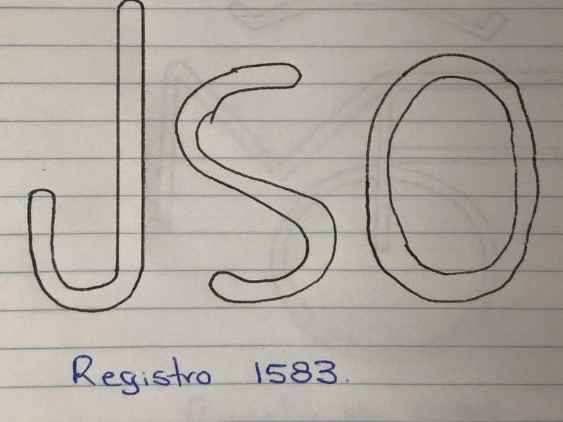 JSO
Registro 1583.